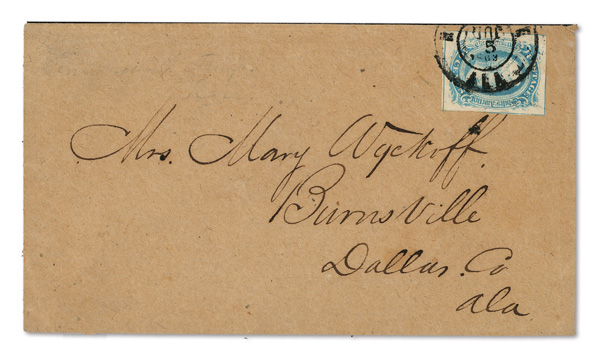 5
ALA
Mrs. Mary Wyckoff.
Burnsville
Dallas. Co
Ala